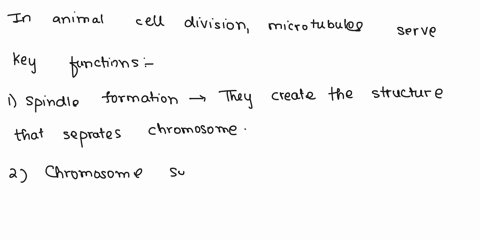 In animal cell division, microtubules serve
key functions:-
1) Spindle formation → They create the structure
that seprates chromosome.
2) Chromosome su